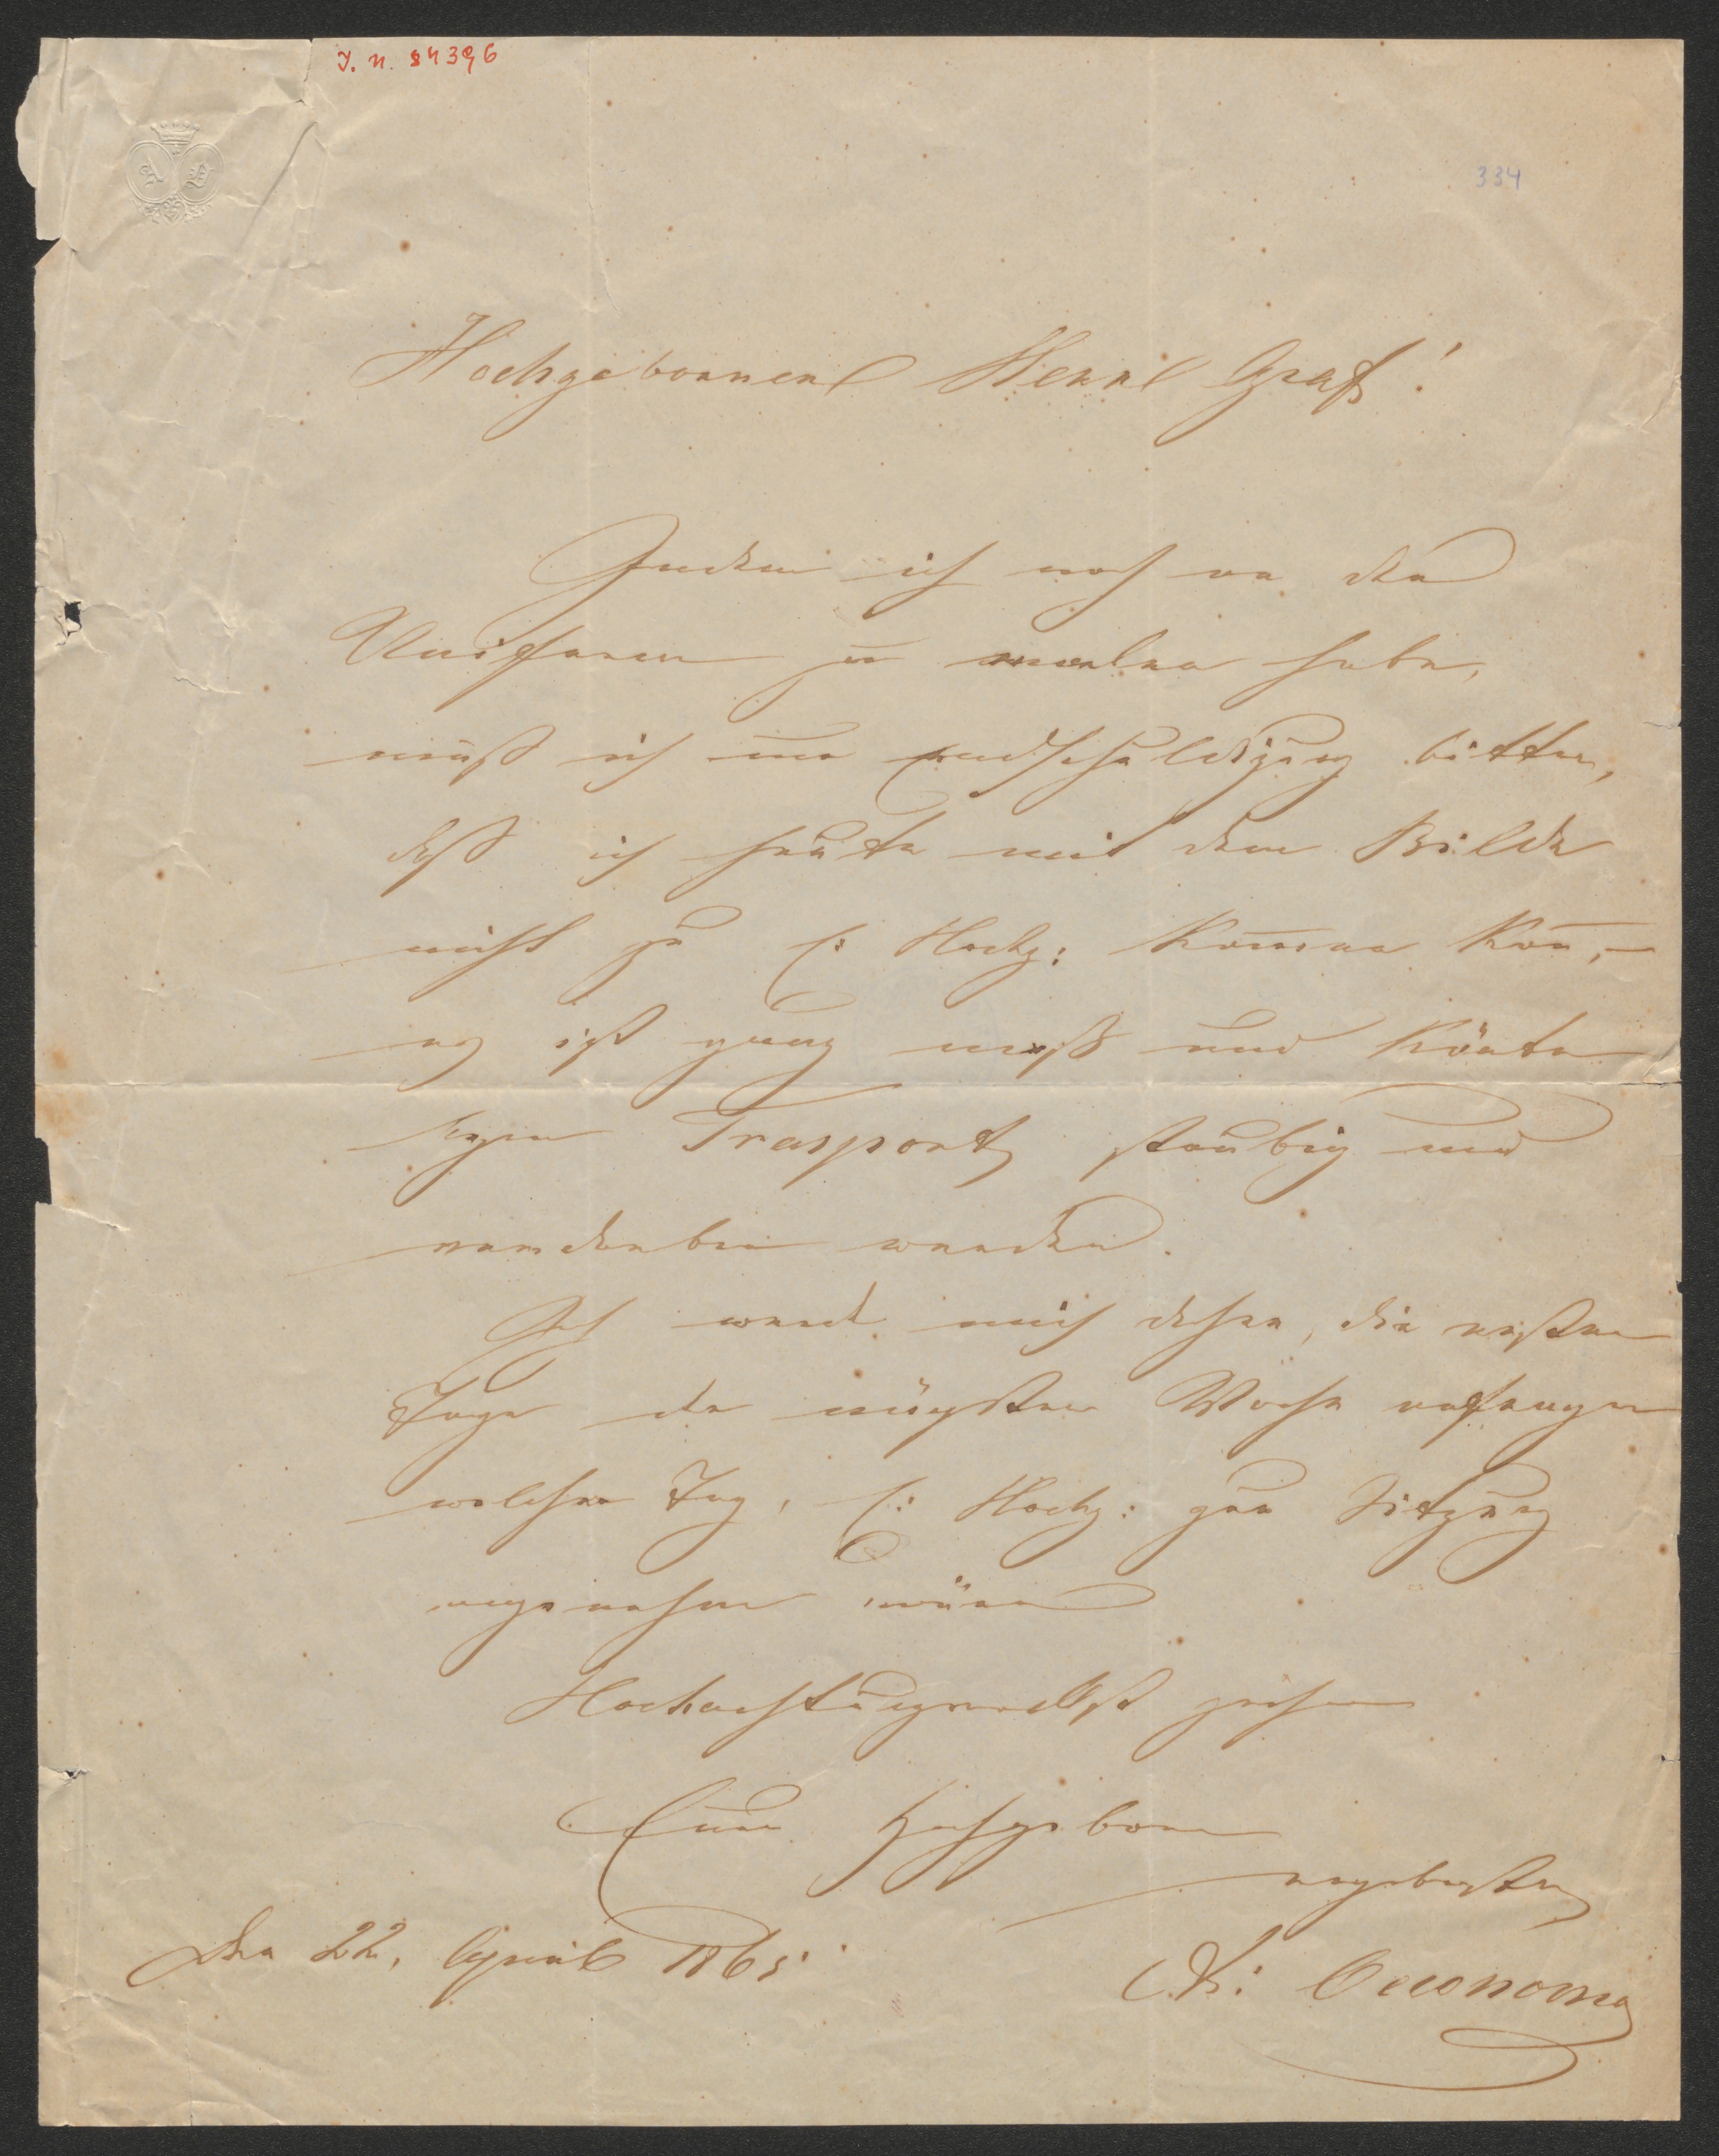 I. N. 84396
334
Hochgebornener Herr Graf!
Indem ich noch an der
Uniform zu malen habe,
muß ich um endschuldigung bitten,
daß ich heute mit dem Bilde
nicht zu E: Hochg: komen kan,–
es ist ganz naß und könte
Trasport staubig und
verderben werden.
Ich werd mich die ersten
Tage der nägsten Woche anfangen
welcher Tag, E: Hochg: zur Sitzung
angenehm wäre
Hochachtungsvollst
Euer Hochgeboren
ergebenster
Den 22. April 1865
A: Oeconomo